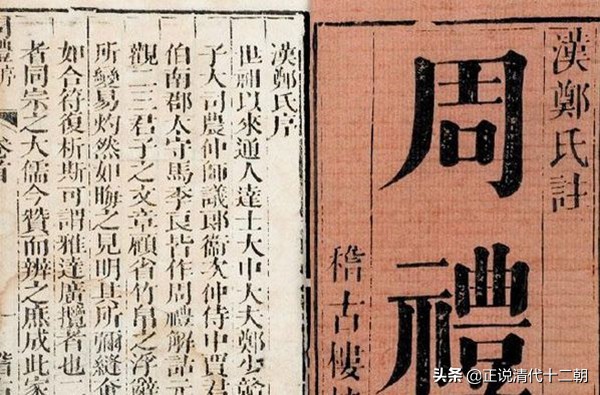 漢鄭氏註
周禮
稽古樓
漢鄭氏序
世祖以來通人達士大中大夫鄭少
子大司農仲師議郎衞次仲侍中賈君
伯南郡太守馬季長皆作周禮解詁元
觀二三君子之文章顧省竹帛之浮辭
所變易灼然如晦之見明其所彌縫奄
如合符復析斯可謂雅達廣攬者也
者同宗之大儒今贊而辨之庶成此家
卷首
头条 @正说清代十二朝